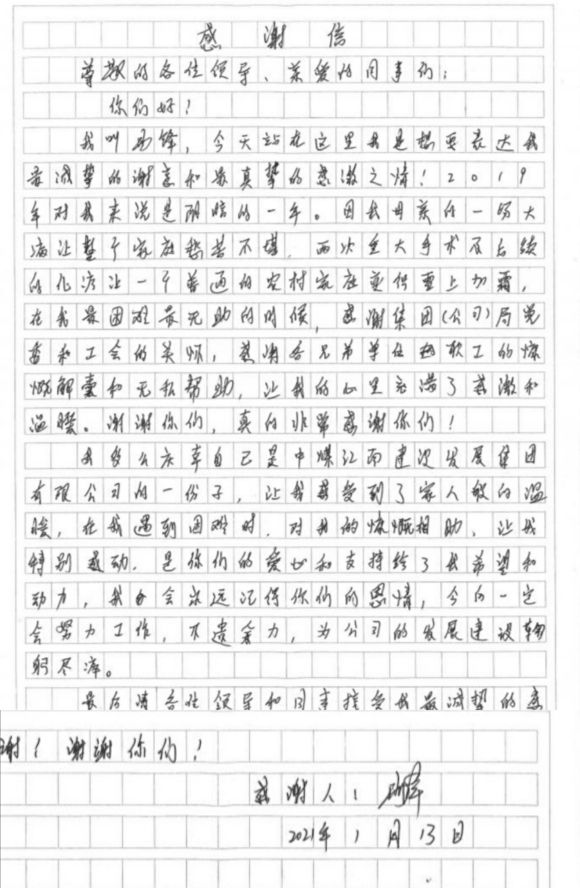 感谢信
尊敬的各位领导、亲爱的同事们：
你们好！
我叫 锋，今天站在这里我是想要表达我
最诚挚的谢意和最真挚的感激之情！2019
年对我来说是阴暗的一年。因我母亲的一场大
病让整个家庭愁苦不堪，两次重大手术及后续
的化疗让一个普通的农村家庭更供雪上加霜，
在我最困难最无助的时候，感谢集团(公司)局党
委和工会的关怀，感谢各兄弟单位 职工的慷
慨解囊和无私帮助，让我的心里充满了感激和
温暖。谢谢你们，真的非常感谢你们！
我多么庆幸自己是中煤江南建设发展集团
有限公司的一份子，让我感受到了家人般的温
暖，在我遇到困难时，对我的慷慨相助，让我
特别感动，是你们的爱心和支持给了我希望和
动力，我会永远记得你们的恩情，今后一定
会努力工作，不遗余力，为公司的发展建设鞠
躬尽瘁。
最后请各位领导和同事接受我最诚挚的感
谢！谢谢你们！
感谢人：
2021年1月13日